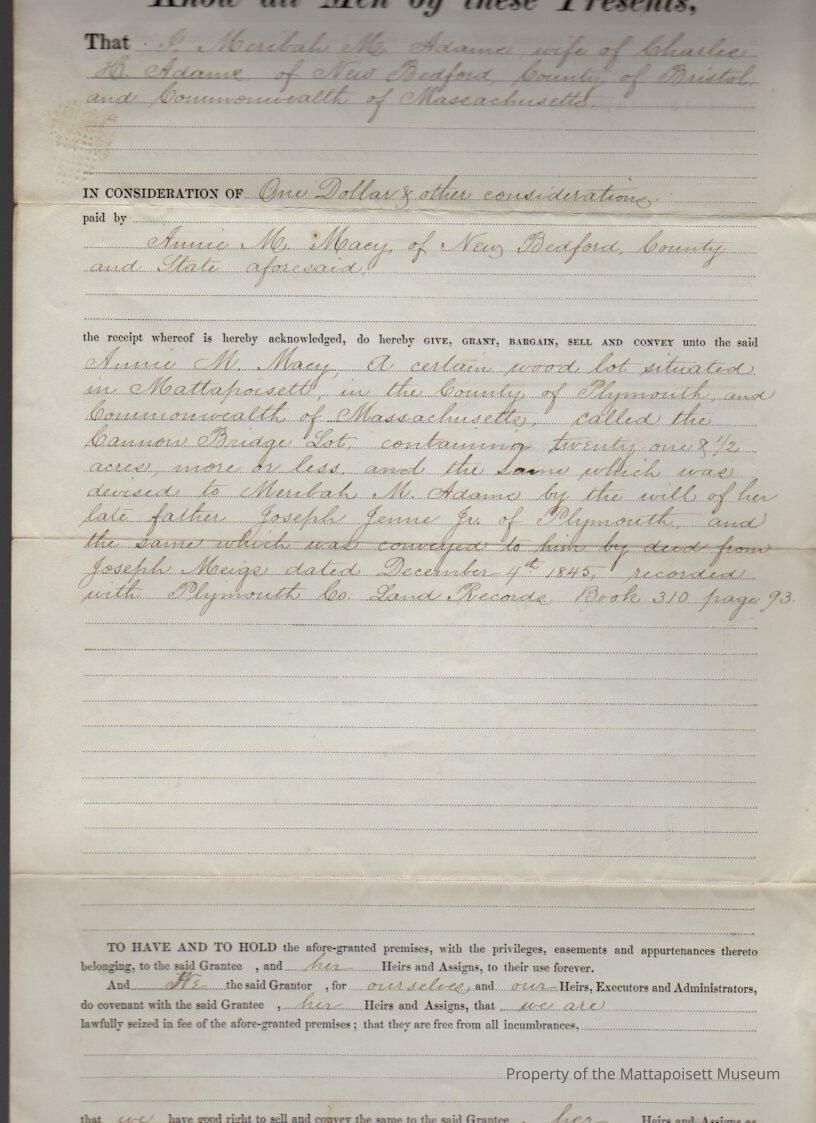 Know all Men by these Presents,
That I, Meribah M. Adams, wife of Charles
H. Adams, of New Bedford, County of Bristol,
and Commonwealth of Massachusetts,
IN CONSIDERATION OF One Dollar & other considerations
paid by
Annie M. Macy, of New Bedford, County
and State aforesaid,
the receipt whereof is hereby acknowledged, do hereby GIVE, GRANT, BARGAIN, SELL AND CONVEY unto the said
Annie M. Macy, A certain wood lot situated
in Mattapoisett, in the County of Plymouth, and
Commonwealth of Massachusetts, called the
Cannon Bridge Lot, containing twenty one & 1/2
acres, more or less, and the same which was
devised to Meribah M. Adams by the will of her
late father Joseph Jenne Jr. of Plymouth, and
the same which was conveyed to him by deed from
Joseph Meigs dated December 4th 1845, recorded
with Plymouth Co. Land Records Book 310 page 93.
TO HAVE AND TO HOLD the afore-granted premises, with the privileges, easements and appurtenances thereto
belonging, to the said Grantee , and her Heirs and Assigns, to their use forever.
And We the said Grantor , for ourselves and our Heirs, Executors and Administrators,
do covenant with the said Grantee , her Heirs and Assigns, that we are
lawfully seized in fee of the afore-granted premises ; that they are free from all incumbrances,
Property of the Mattapoisett Museum
that we have good right to sell and convey the same to the said Grantee , her Heirs and Assigns as